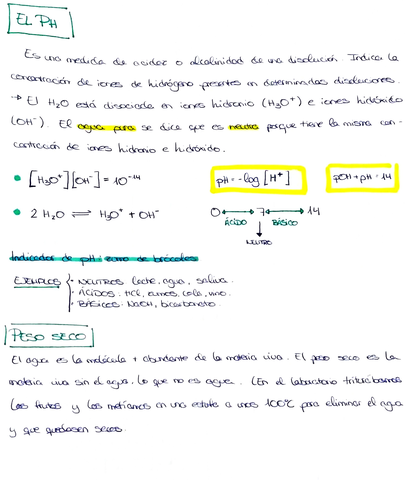 EL PH
Es una medida de acidez o alcalinidad de una disolución. Indica la
concentración de iones de hidrógeno presentes en determinadas disoluciones.
→ El H₂O está disociada en iones hidronio (H₃O⁺) e iones hidróxido
(OH⁻). El agua pura se dice que es neutra porque tiene la misma con-
centración de iones hidronio e hidróxido.
• [H₃O⁺][OH⁻] = 10⁻¹⁴ pH = -log [H⁺] pOH + pH = 14
• 2 H₂O ⇌ H₃O⁺ + OH⁻ 0 ↔ 7 ↔ 14
ÁCIDO BÁSICO
NEUTRO
Indicador de pH: zumo de brócoli
EJEMPLOS - NEUTROS: leche, agua, saliva.
- ÁCIDOS: HCl, zumos, cola, vino.
- BÁSICOS: NaOH, bicarbonato.
PESO SECO
El agua es la molécula + abundante de la materia viva. El peso seco es la
materia viva sin el agua, lo que no es agua. (En el laboratorio triturábamos
los frutos y los metíamos en una estufa a unos 100°C para eliminar el agua
y que quedasen secos.